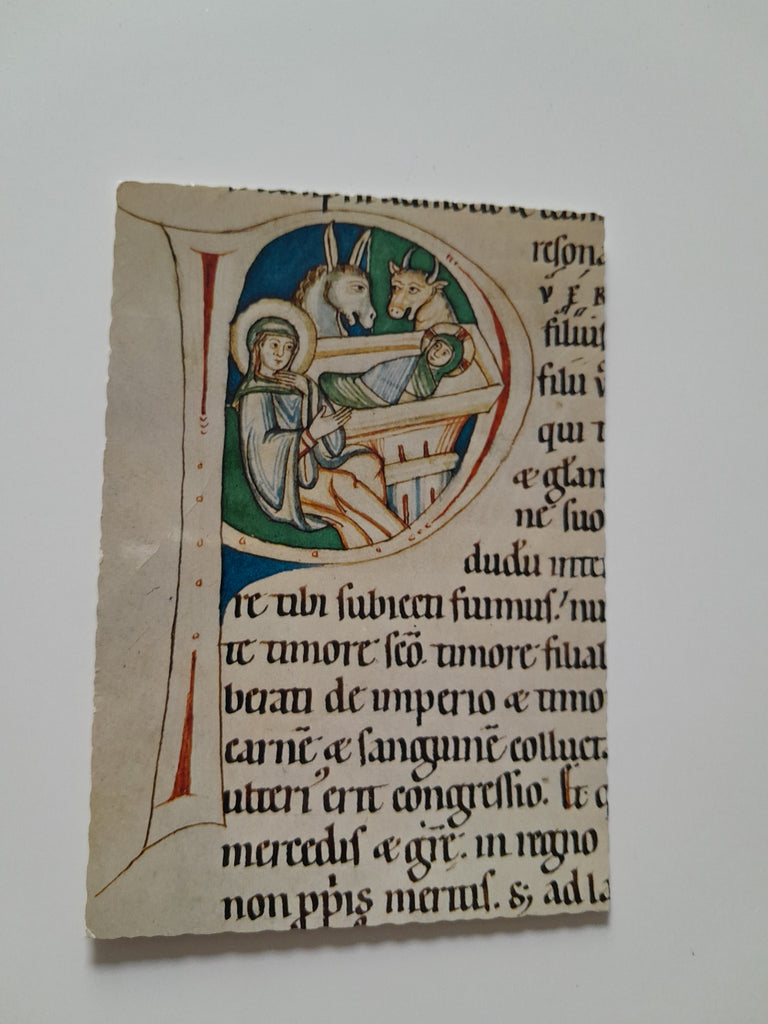 P
resona
V E R
filiu
filii
qui
æ glan
ne suo
dudu inte
re tibi subiecti fuimus; nu
te timore scō. timore filial
berati de imperio æ timo
carnē æ sanguinē colluct
ulteri᾽ erit congressio. Et q
mercedis æ grē. in regno
non ppis meritis. & ad la